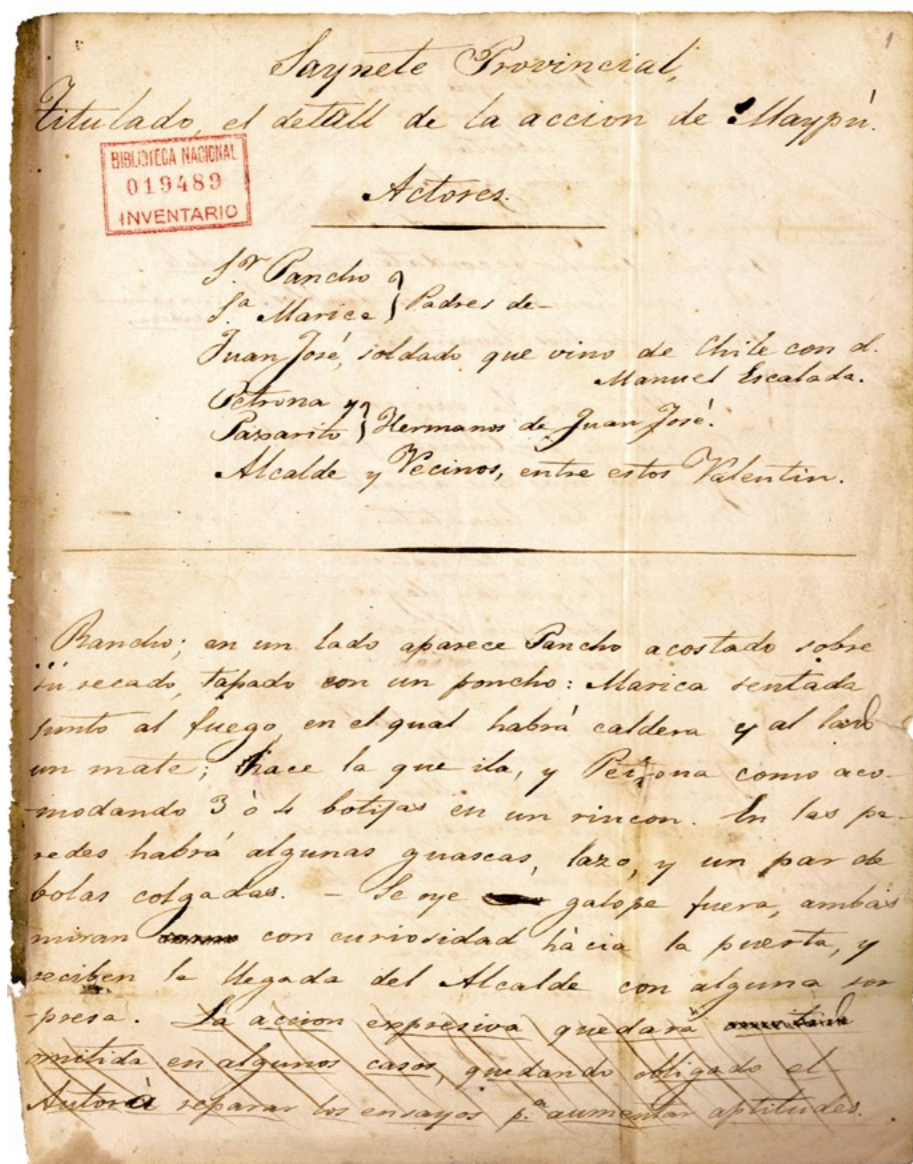 1
Saynete Provincial,
Titulado, el detall de la accion de Maypú.
BIBLIOTECA NACIONAL
019489
INVENTARIO
Actores.
S.r Pancho
S.a Marica } Padres de-
Juan José, soldado que vino de Chile con d.
Manuel Escalada.
Petrona y
Paxarito } Hermanos de Juan José.
Alcalde y Vecinos, entre estos Valentin.
Rancho; en un lado aparece Pancho acostado sobre
su recado, tapado con un poncho: Marica sentada
junto al fuego, en el qual habrá caldera y al lado
un mate; hace la que ila, y Petrona como aco-
modando 3 ò 4 botijas en un rincon. En las pa-
redes habrá algunas guascas, lazo, y un par de
bolas colgadas. - Se oye galope fuera, ambas
miran con curiosidad hàcia la puerta, y
reciben la llegada del Alcalde con alguna sor
-presa. La accion expresiva quedará
omitida en algunos casos, quedando obligado el-
Autor à reparar los ensayos p.a aumentar aptitudes.